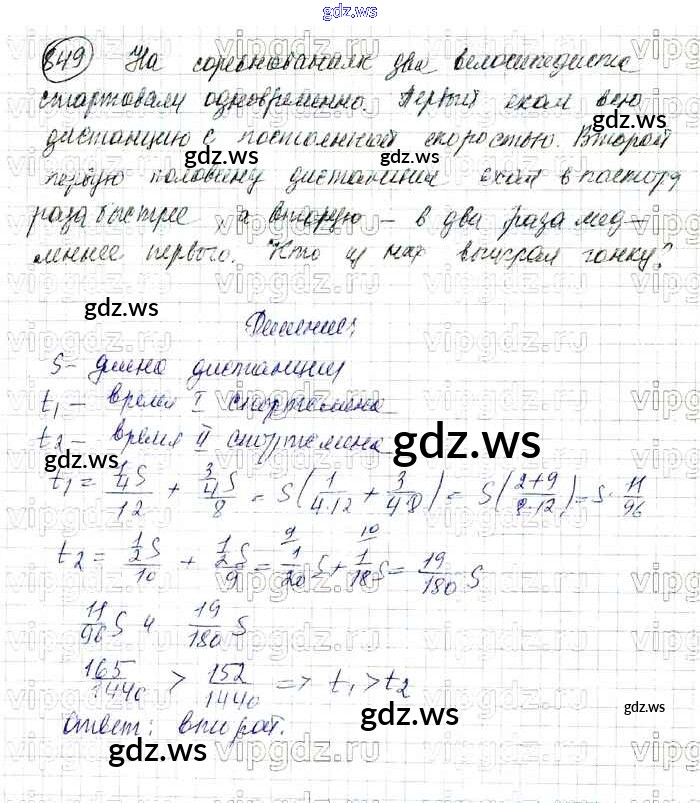 gdz.ws
849 На соревнованиях два велосипедиста
стартовали одновременно. Первый ехал всю
дистанцию с постоянной скоростью. Второй
gdz.ws gdz.ws
первую половину дистанции ехал в полтора
раза быстрее, а вторую – в два раза мед-
gdz.ws gdz.ws
леннее первого. Кто из них выиграл гонку?
gdz.ws
Решение:
S – длина дистанции
t₁ – время I спортсмена
t₂ – время II спортсмена
gdz.ws gdz.ws
t₁ = 1/4 S / 12 + 3/4 S / 8 = S(1/4·12 + 3/4·8) = S(2+9/8·12) = S · 11/96
t₂ = 1/2 S / 10 + 1/2 S / 9 = 1/20 S + 1/18 S = 19/180 S
9 10
11/96 S и 19/180 S
165/1440 > 152/1440 => t₁ > t₂
gdz.ws
Ответ: второй.
gdz.ws gdz.ws
vipgdz.ru